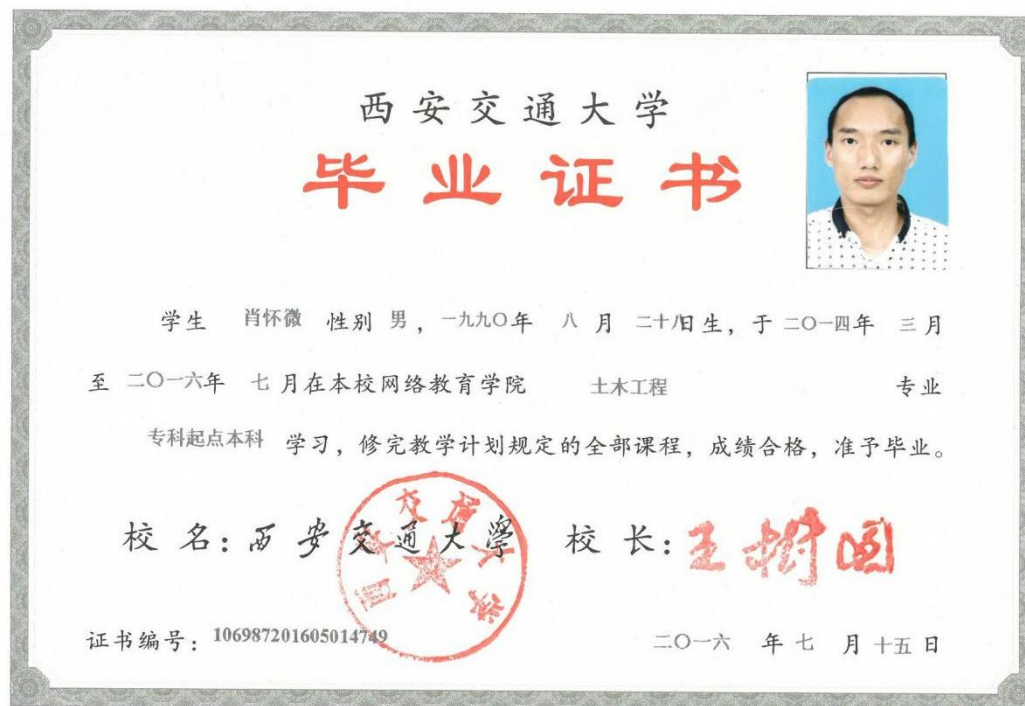 西安交通大学
毕业证书
学生 肖怀微 性别 男，一九九〇年 八 月 二十八日生，于 二〇一四年 三月
至 二〇一六年 七 月在本校网络教育学院 土木工程 专业
专科起点本科 学习，修完教学计划规定的全部课程，成绩合格，准予毕业。
校 名：西安交通大学 校 长：王树国
西安交通大学
证书编号：106987201605014749 二〇一六 年 七 月 十五 日